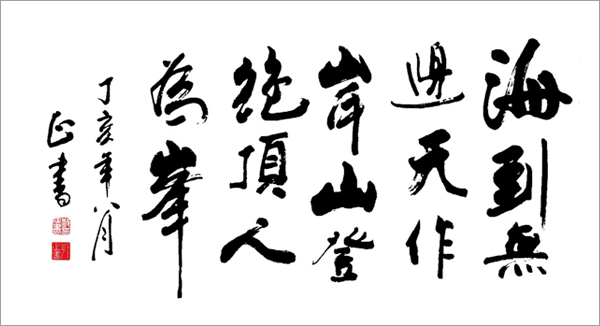 海到無
邊天作
岸山登
絕頂人
為峯
丁亥年八月
正書